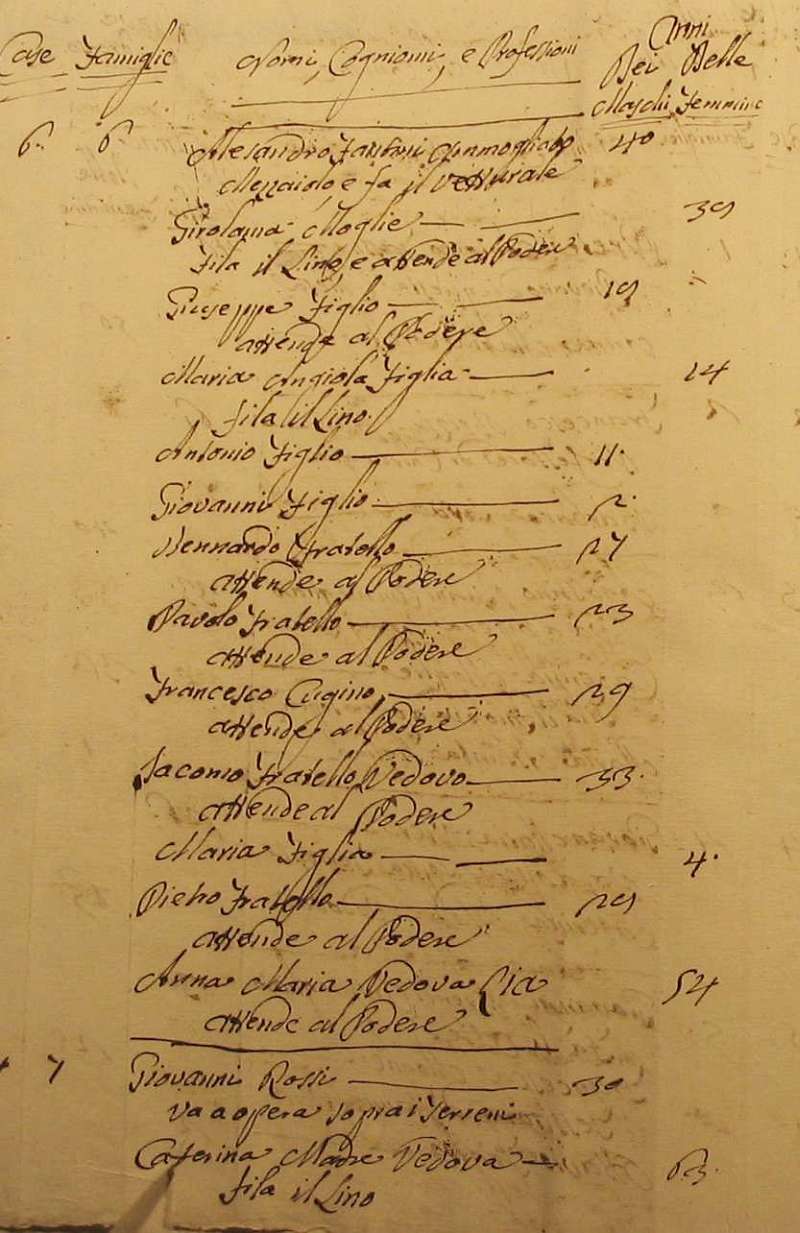 Case Famiglie Nomi, Cogniomi, e Professioni Anni
Dei Delle
Maschi Femmine
6. 6 Alesandro Fantoni Ammogliato 40
Mezzaiolo e fa il Vetturale
Girolama Moglie 39
Fila il Lino, e attende al Podere
Giuseppe Figlio 19
attende al Podere
Maria Angiola Figlia 14
fila il Lino.
Antonio Figlio 11.
Giovanni Figlio 2.
Bennardo Fratello 27
attende al Podere
Pavolo Fratello 23
attende al Podere
Francesco Cugino 29
attende al Podere
Iacomo Fratello Vedovo 33.
attende al Podere
Maria Figlia 4.
Pietro Fratello 29
attende al Podere
Anna Maria Vedova Zia 54
attende al Podere
7 Giovanni Rossi 30
va a opera sopra i Terreni
Caterina Madre Vedova 63.
fila il Lino